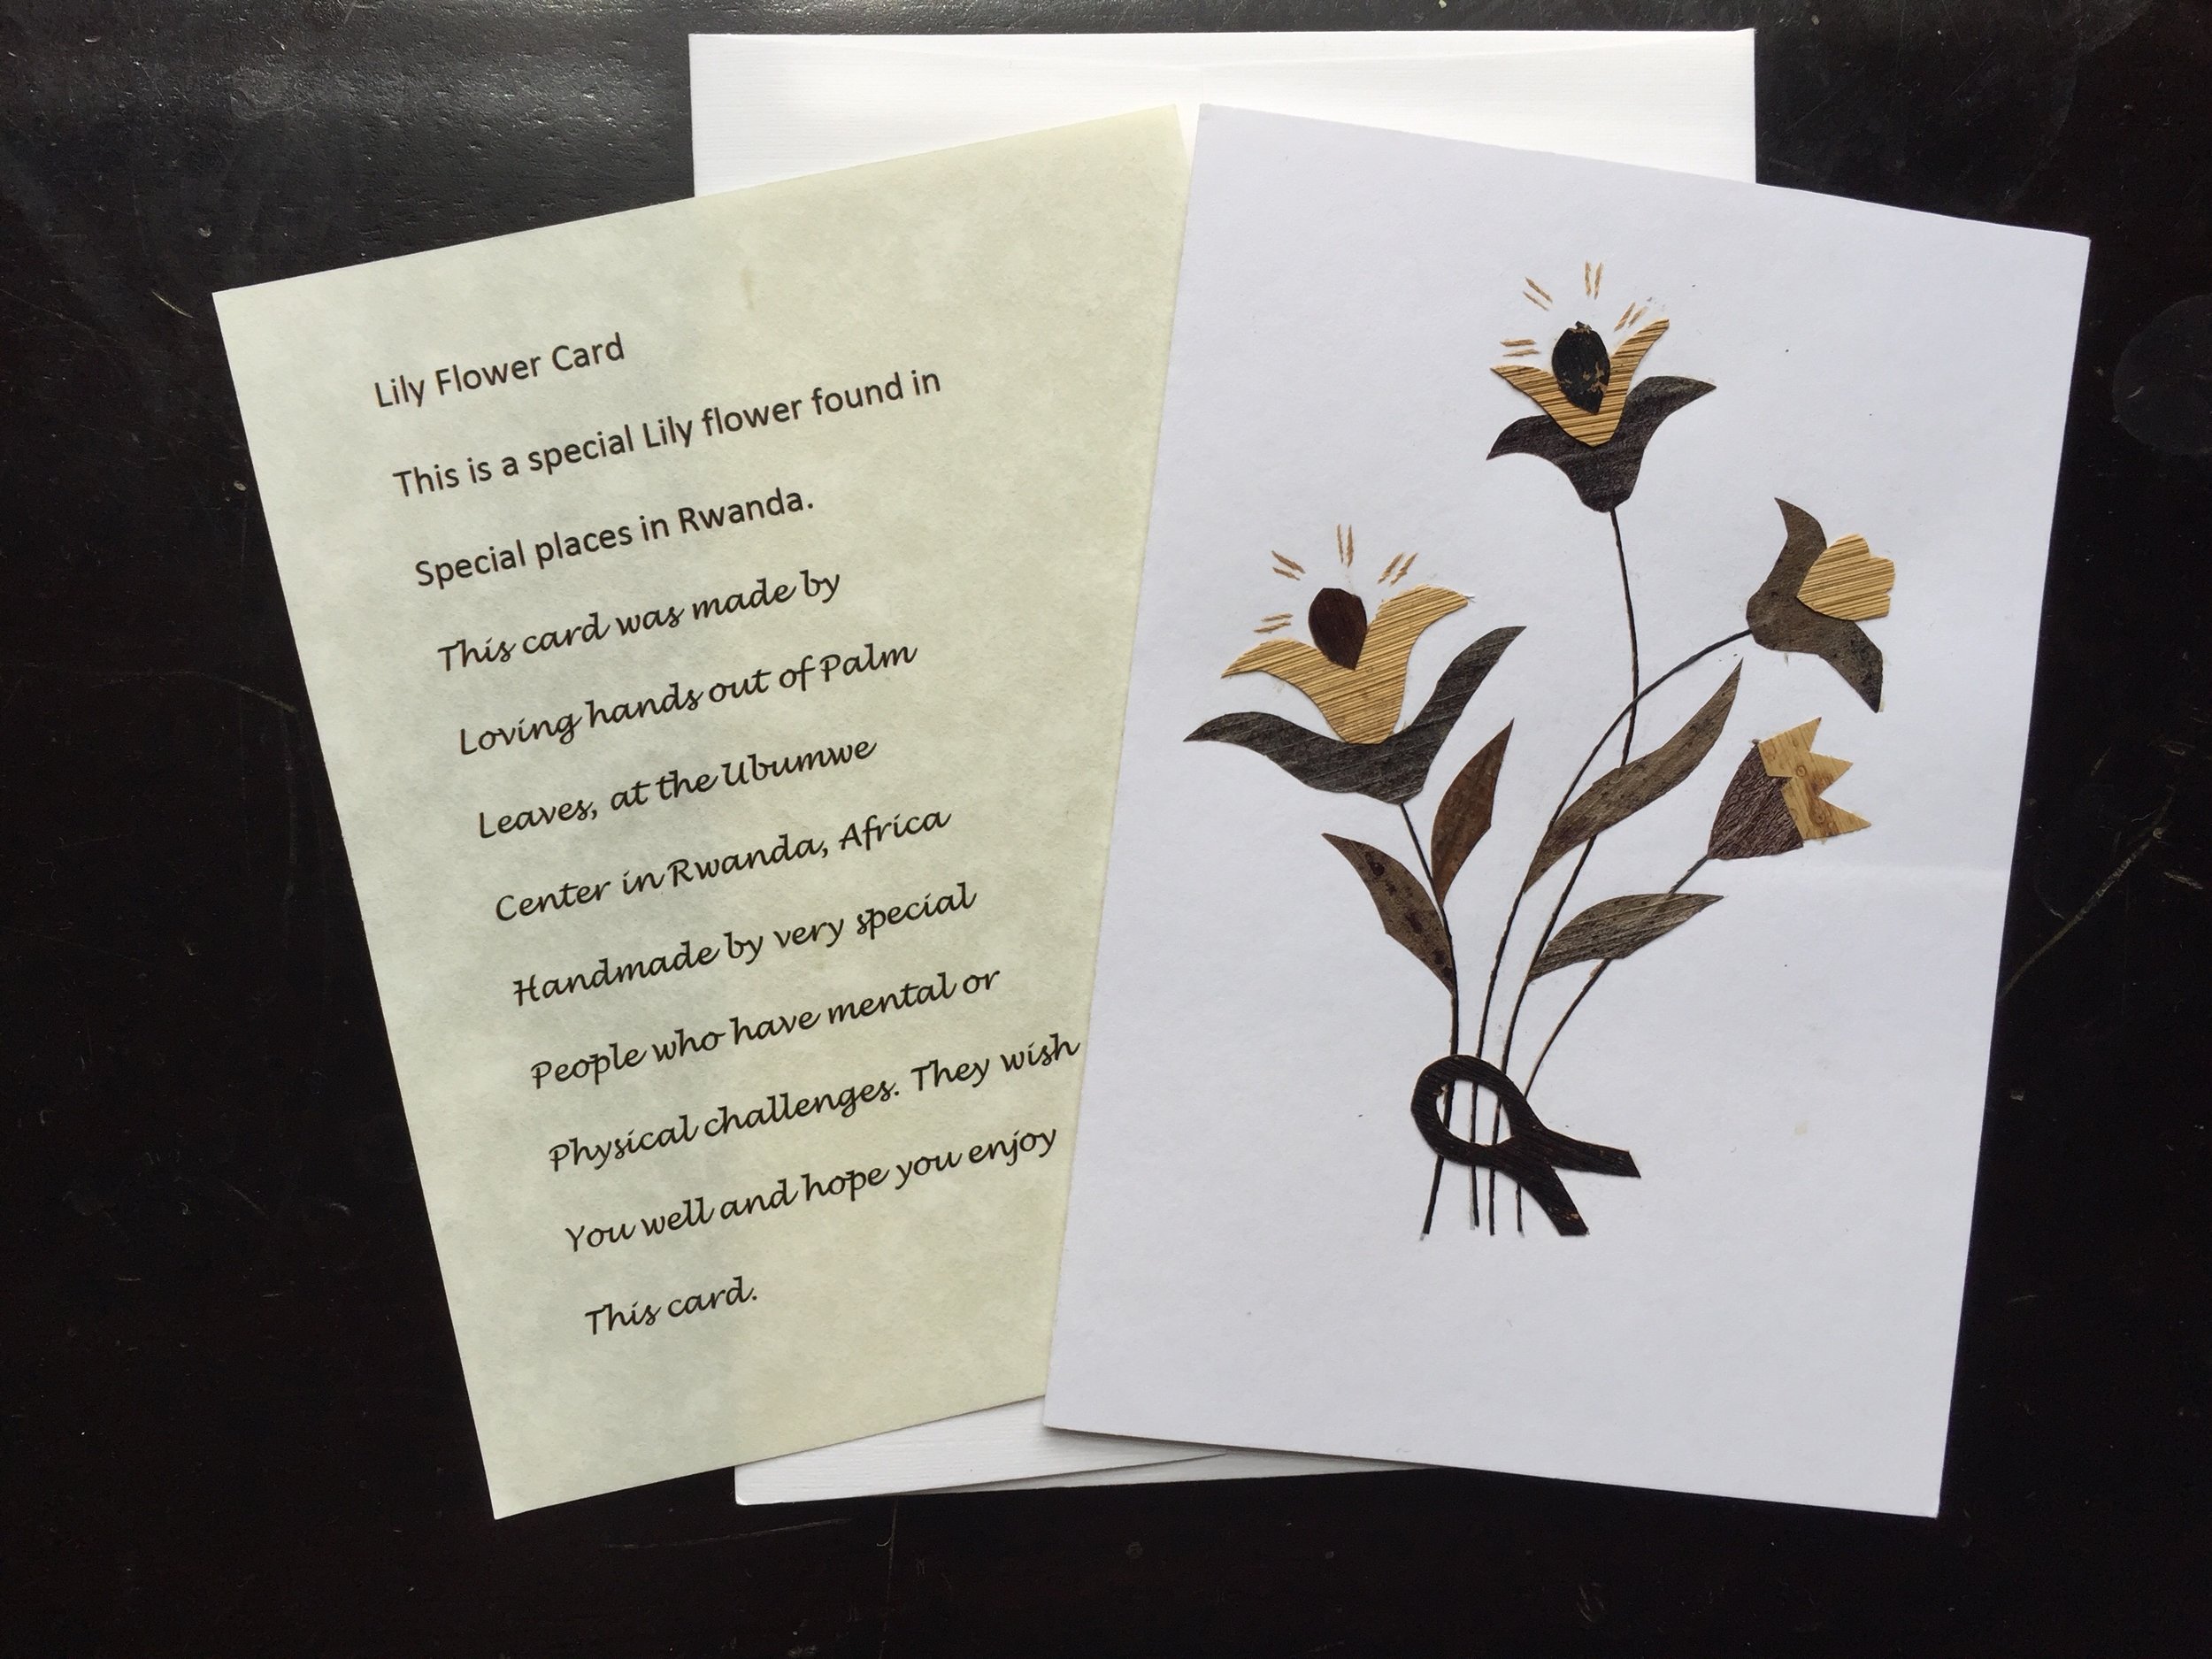 Lily Flower Card
This is a special Lily flower found in
Special places in Rwanda.
This card was made by
Loving hands out of Palm
Leaves, at the Ubumwe
Center in Rwanda, Africa
Handmade by very special
People who have mental or
Physical challenges. They wish
You well and hope you enjoy
This card.